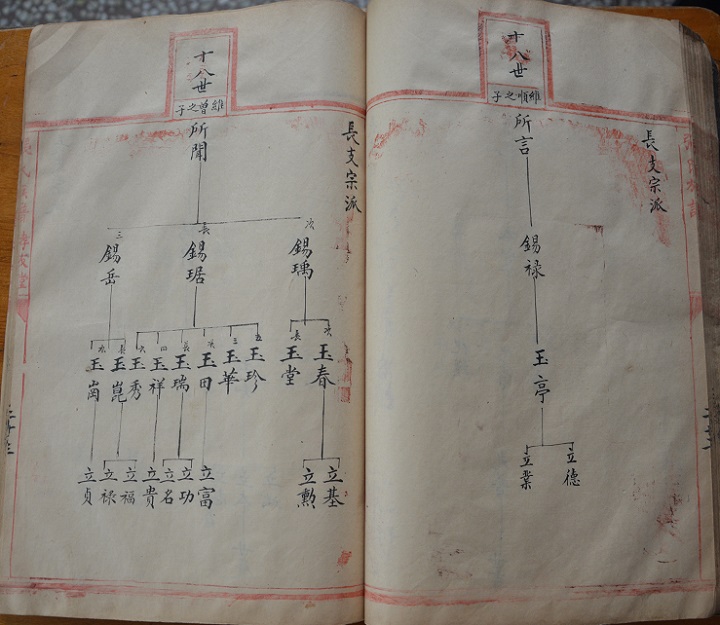 十八世
維順之子
長支宗派
所言
錫禄
玉亭
立德
立業
十八世
維曾之子
長支宗派
所聞
次 錫瑀
長 錫琚
三 錫岳
次 玉春
長 玉堂
五 玉珍
三 玉華
次 玉田
長 玉瑞
四 玉祥
六 玉秀
長 玉崑
次 玉崗
立基
立勲
立富
立功
立名
立貴
立福
立禄
立貞